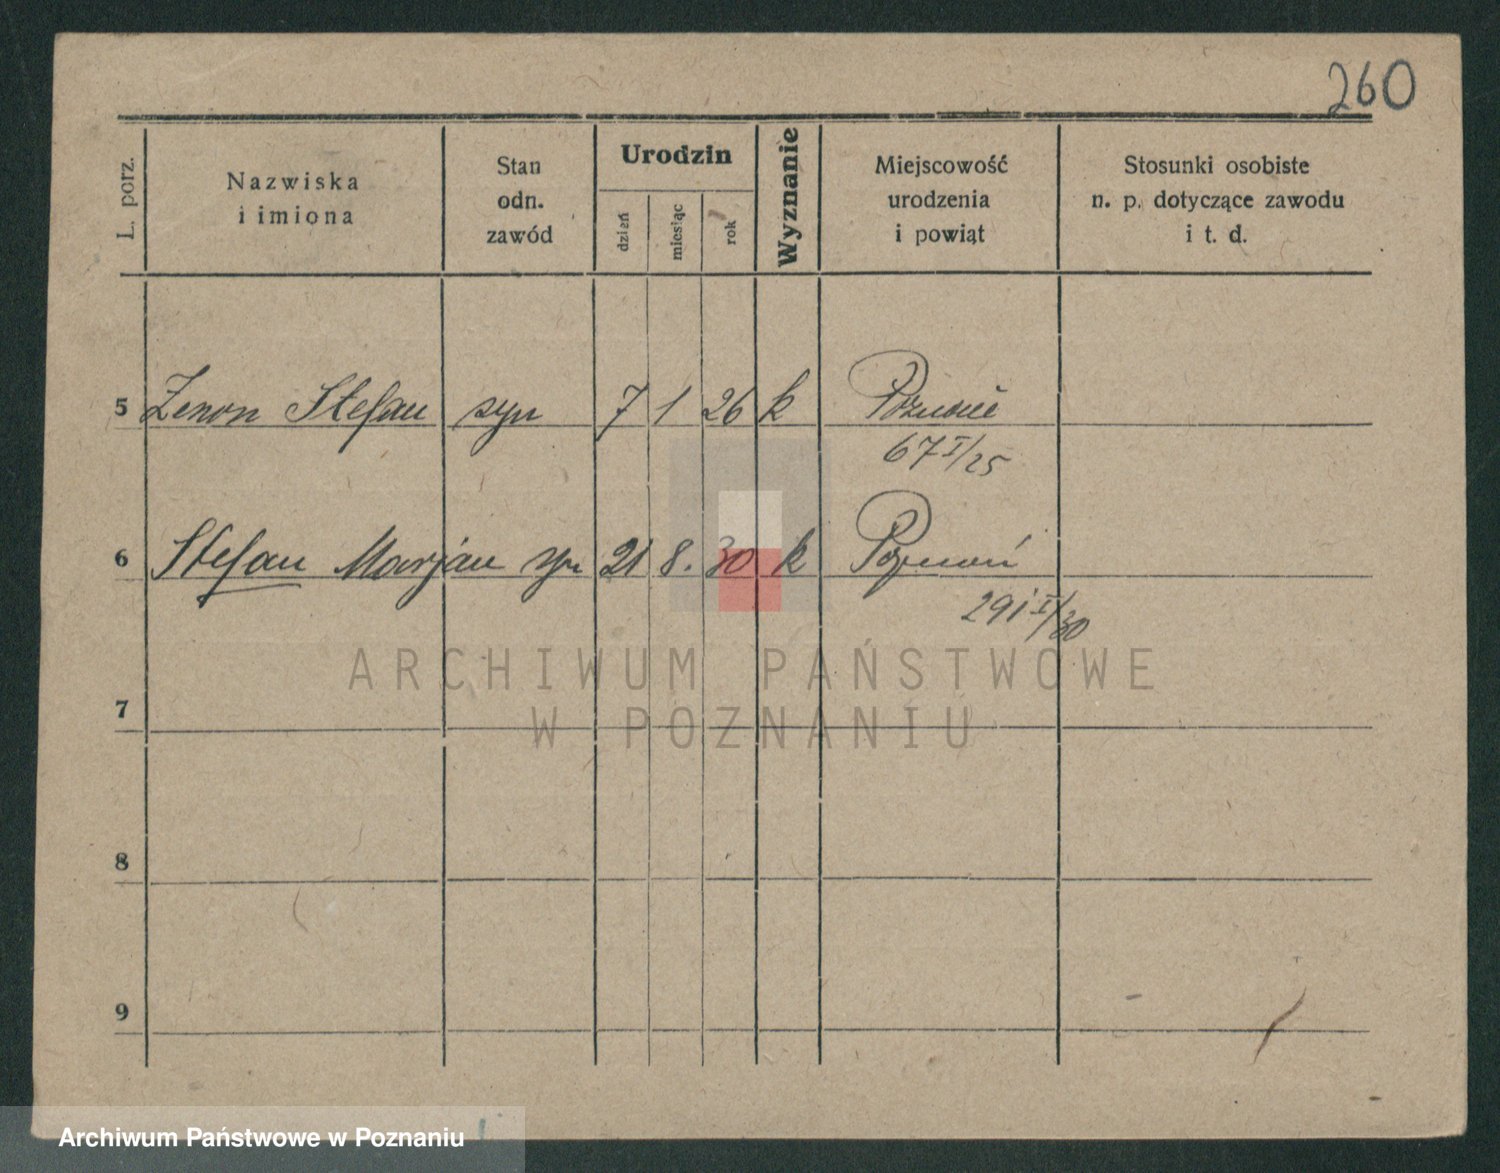 260
L. porz.
Nazwiska
i imiona
Stan
odn.
zawód
Urodzin
dzień
miesiąc
rok
Wyznanie
Miejscowość
urodzenia
i powiat
Stosunki osobiste
n. p. dotyczące zawodu
i t. d.
5 Zenon Stefan syn 7 1 26 k Poznań
67 I/25
6 Stefan Marjan syn 21 8. 30 k Poznań
291 I/30
ARCHIWUM PAŃSTWOWE
W POZNANIU
7
8
9
Archiwum Państwowe w Poznaniu